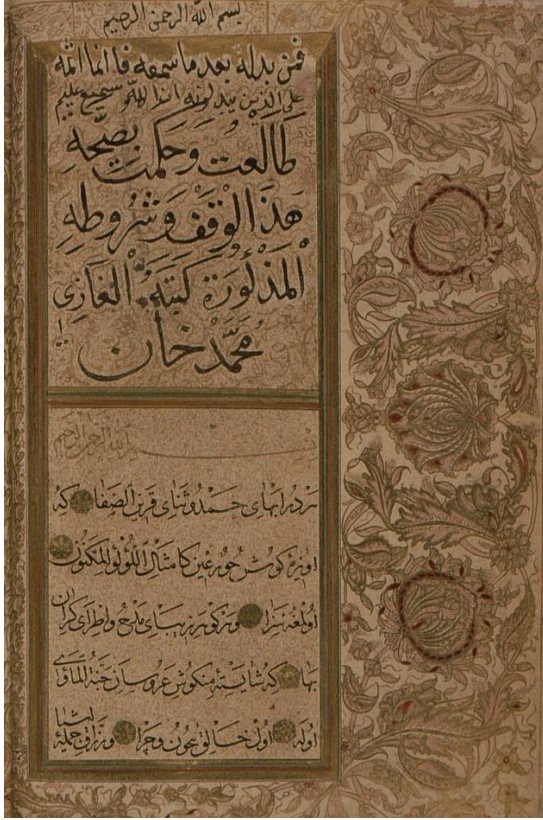 بسم الله الرحمن الرحيم
فمن بدله بعد ما سمعه فانما اثمه
على الذين يبدلونه ان الله سميع عليم
طالعت وحكمت بصحة
هذا الوقف وشروطه
المذكورة كتبه الغازى
محمد خان
بسم الله الرحمن الرحيم
هر در ابهاى حمد و ثناى قرين الصفا كه
اويزه كوش حور عين كامثال اللؤلؤ المكنون
اولغه سزا و هر كوهر زيباى مدح و اطراى كران
بها كه شايسته منكوش عروسان جنة المأوى
اوله اول خالق بيچون و چرا و رزاق جمله